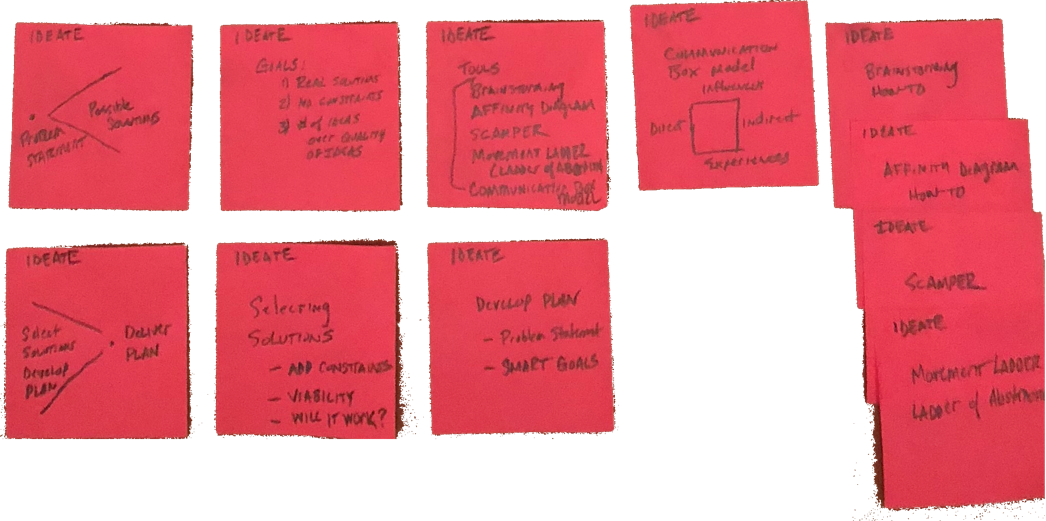 IDEATE
Possible
Solutions
Problem
Statement
IDEATE
Goals:
1) Real Solutions
2) No constraints
3) # of ideas
over quality
of ideas
IDEATE
Tools
Brainstorming
Affinity Diagram
SCAMPER
Movement Ladder
(Ladder of Abstraction
Communication Box
Model
IDEATE
Communication
Box Model
Influences
Direct
Indirect
Experiences
IDEATE
Brainstorming
How-to
IDEATE
Affinity Diagram
How-to
IDEATE
SCAMPER
IDEATE
Movement Ladder
Ladder of Abstraction
IDEATE
Select
Solutions
Develop
Plan
Deliver
Plan
IDEATE
Selecting
Solutions
- Add constraints
- Viability
- Will it work?
IDEATE
Develop Plan
- Problem Statement
- SMART Goals